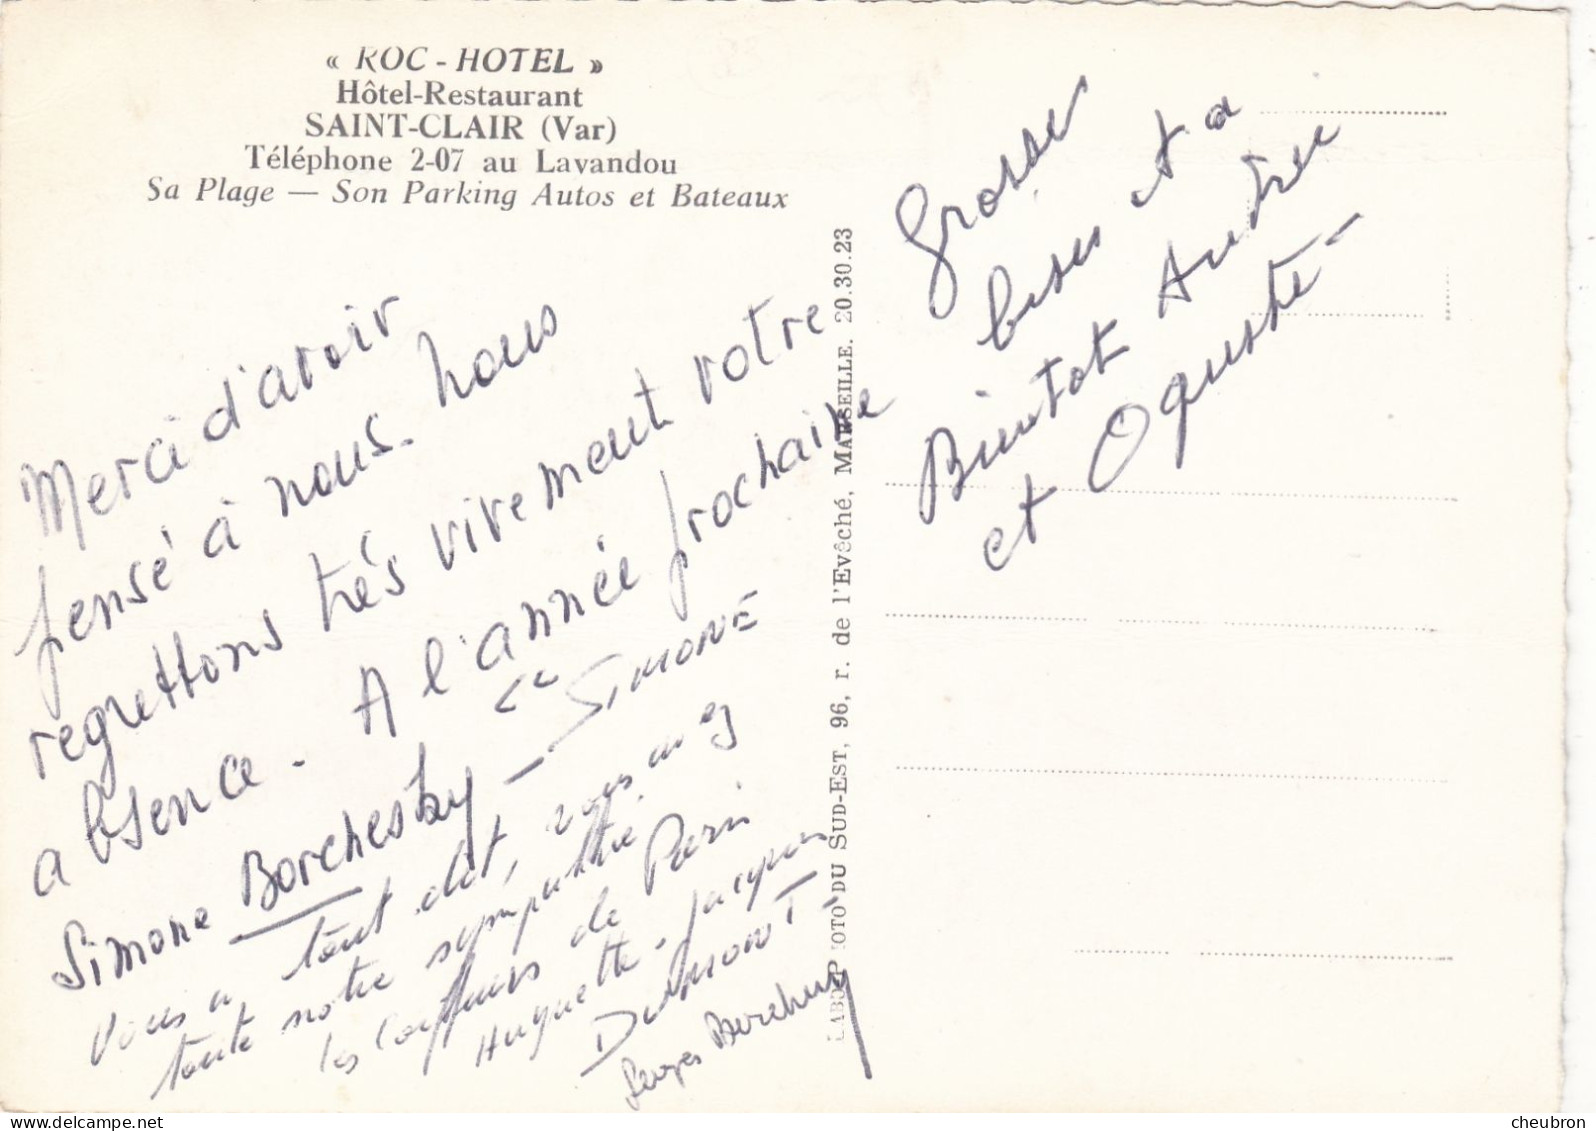 « ROC - HOTEL »
Hôtel-Restaurant
SAINT-CLAIR (Var)
Téléphone 2-07 au Lavandou
Sa Plage — Son Parking Autos et Bateaux
Merci d'avoir
pensé à nous. nous
regrettons très vivement votre
absence. A l'année prochaine
Simone Borchesky — SIMONE
Vous a tout dit, vous avez
toute notre sympathie
les coiffeurs de Paris
Huguette - Jacques
DUMONT -
Georges
Grosses
bises et a
Bientot Andrée
et Oguste -
LABO PHOTO DU SUD-EST, 96, r. de l'Evêché, MARSEILLE. 20.30.23
cheubron